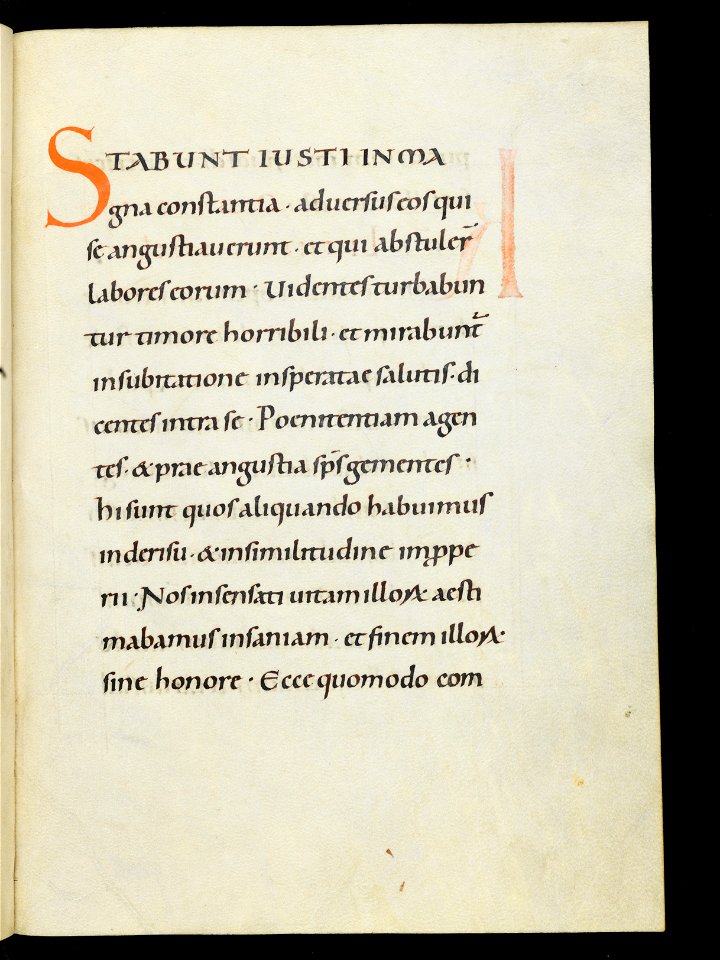 STABUNT IUSTI IN MA
gna constantia · aduersus eos qui
se angustiauerunt · et qui abstuler̄
labores eorum · Uidentes turbabun
tur timore horribili · et mirabunt̄
in subitatione insperatae salutis · di
centes intra se · Poenitentiam agen
tes · & prae angustia sp̄s gementes ·
hi sunt quos aliquando habuimus
in derisu · & in similitudine inꝓpe
rii · Nos insensati uitam illoꝝ aesti
mabamus insaniam · et finem illoꝝ
sine honore · Ecce quomodo com